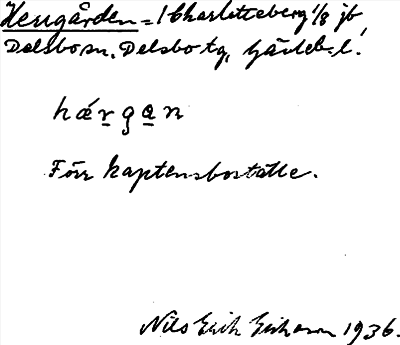 Herrgården = 1 Charlotteberg 1/8 jb
Delsbo sn. Delsbo tg, Gävleb. l.
hǽr̲ga̲n
Förr kaptensboställe.
Nils Erik Erikson 1936.